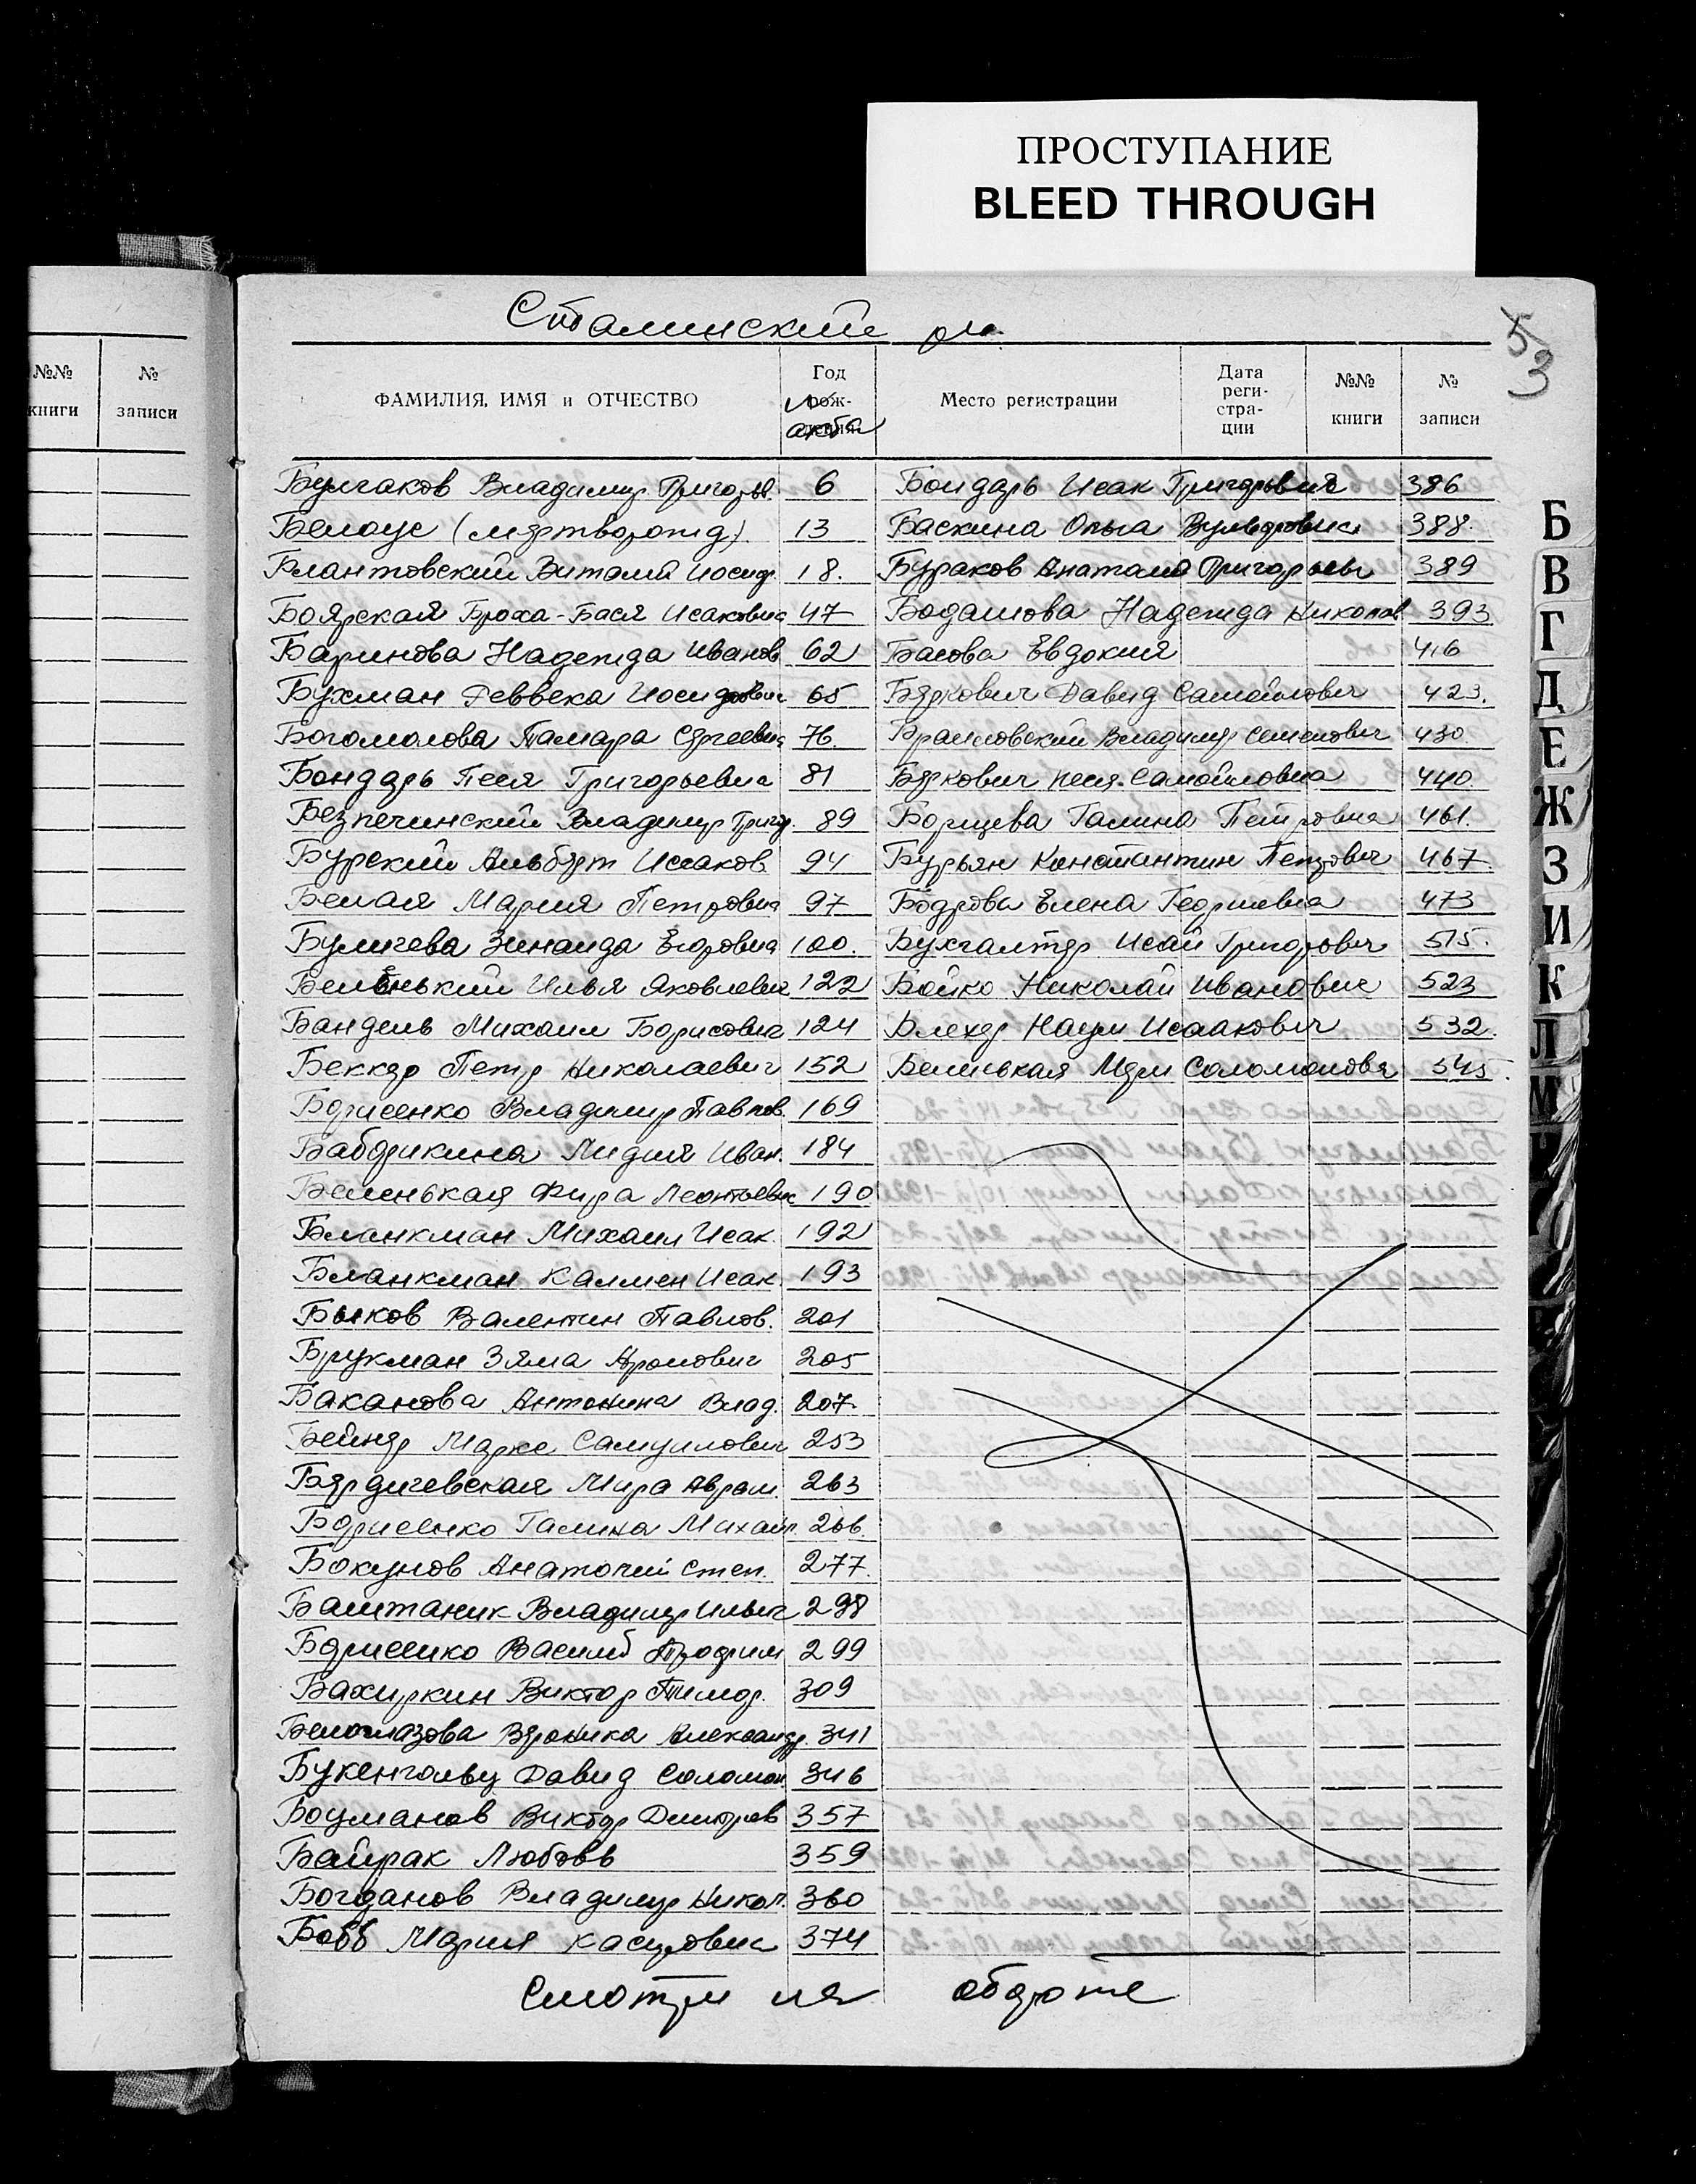 ПРОСТУПАНИЕ
BLEED THROUGH
Сталинский рн.
53
№№ книги № записи
ФАМИЛИЯ, ИМЯ и ОТЧЕСТВО Год рождения № акта Место регистрации Дата регистрации №№ книги № записи
Булгаков Владимир Григорьев. 6 Бондарь Исак Григорьевич 386
Белоус (мертворожд.) 13 Баскина Ольга Вульфовна 388.
Блантовский Виталий Иосиф. 18. Бураков Анатолий Григорьев 389
Боярская Броха-Бася Исаковна 47 Бодашова Надежда Николов 393
Баринова Надежда Иванов 62 Басова Евдокия 416
Бухман Реввека Иосифовна 65 Беркович Давид Самойлович 423.
Богомолова Тамара Сергеевна 76. Браиловский Владимир Семенович 430
Бондарь Песя Григорьевна 81 Беркович Песя Самойловна 440.
Безпечинский Владимир Григ. 89 Борщева Галина Петровна 461.
Бурский Альберт Исаков. 94 Бурьян Константин Петрович 467
Белая Мария Петровна 97 Бодрова Елена Георгиевна 473
Буличева Зинаида Егоровна 100. Бухгалтер Исай Григорович 515.
Беленький Илья Яковлевич 122 Бойко Николай Иванович 523
Бандель Михаил Борисович 124 Блехер Наум Исаакович 532.
Беккер Петр Николаевич 152 Беленькая Мэри Соломоновна 545.
Борисенко Владимир Павлов. 169
Бабошкина Лидия Иван. 184
Беленькая Фира Леонтьевна 190
Бланкман Михаил Исак. 192
Бланкман Калмен Исак. 193
Быков Валентин Павлов. 201
Брукман Зяма Аронович 205
Баканова Антонина Влад. 207.
Бейнер Марке Самуилович 253
Бердичевская Мира Аврам. 263
Борисенко Галина Михайл. 266.
Бокунов Анатолий Степ. 277.
Баштаник Владимир Ильич 298
Борисенко Василий Трофим 299
Бахиркин Виктор Тимоф. 309
Белоглазова Вероника Александр. 341
Букенгольц Давид Соломон. 346
Боуманов Виктор Дмитров 357
Байрак Любовь 359
Богданов Владимир Никол. 360
Бобб Мария Касировна 374
Смотри на обороте
Б
В
Г
Д
Е
Ж
З
И
К
Л
М